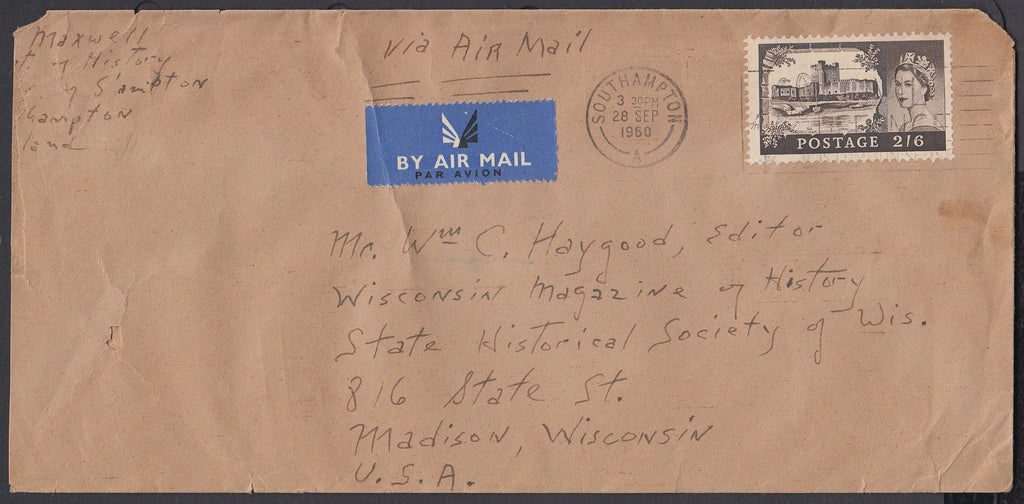 Maxwell
of History
S'ampton
Via Air Mail
BY AIR MAIL
PAR AVION
SOUTHAMPTON
3 30PM
28 SEP
1960
A
POSTAGE 2/6
Mr. Wm C. Haygood, Editor
Wisconsin Magazine of History
State Historical Society of Wis.
816 State St.
Madison, Wisconsin
U.S.A.